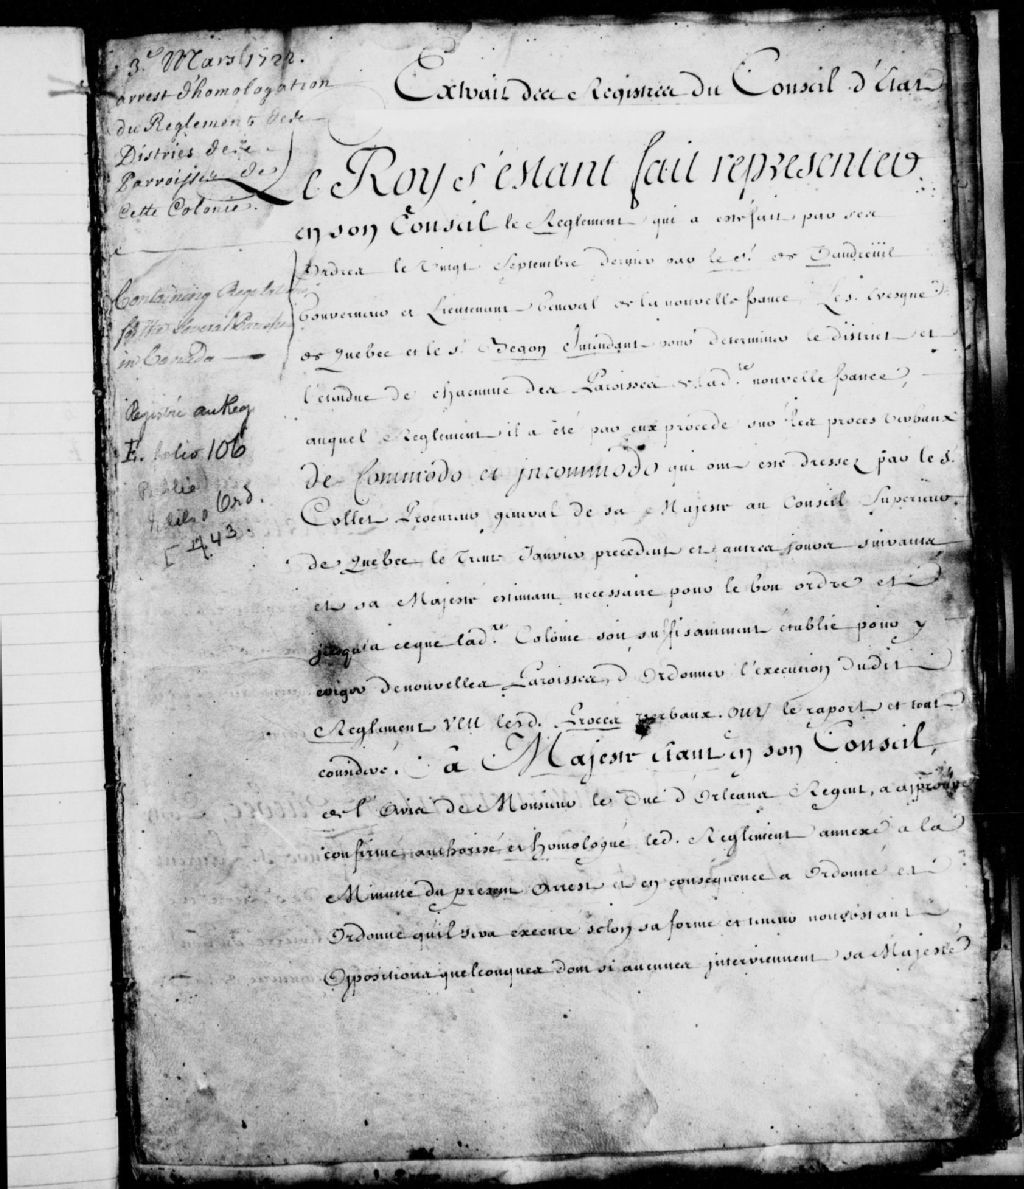 3.e Mars 1722.
arrest d'homologation
du Reglement des
Districs de
Parroisses de
cette Colonie.
Containing Regulations
for the several Parishes
in Canada
Registré au Reg
E. folio 106
Publié
Ord.
1743.
Extrait des Registres du Conseil d'Etat
Le Roy s'estant fait representer
en son Conseil le Reglement qui a esté fait par ses
Ordres le Vingt Septembre dernier par le S.r de Vaudreüil
Gouverneur et Lieutenant General de la nouvelle france, Le S. Evesque
de Quebec et le S.r Begon Intendant pour determiner le district et
l'étendue de chacune des Paroisses de lad.te nouvelle france,
auquel Reglement il a été par eux procedé sur les proces verbaux
de Commodo et incommodo qui ont esté dressez par le S.
Collet Procureur general de sa Majesté au Conseil Superieur
de Quebec le Trente Janvier precedent et autres jours suivants
et sa Majesté estimant necessaire pour le bon ordre et
jusqu'a ceque lad.te Colonie soit suffisamment établie pour y
eriger de nouvelles Paroisses, d'Ordonner l'execution dudit
Reglement VEU lesd. Procés verbaux. OUY le raport et tout
consideré. Sa Majesté étant en son Conseil,
de l'Avis de Monsieur le Duc d'Orleans Regent, a approuvé
confirmé, authorisé et homologué led. Reglement annexé a la
Minutte du present Arrest et en consequence a Ordonné et
Ordonne qu'il sera executé selon sa forme et teneur nonobstant
Oppositions quelconques dont si aucunes interviennent sa Majesté